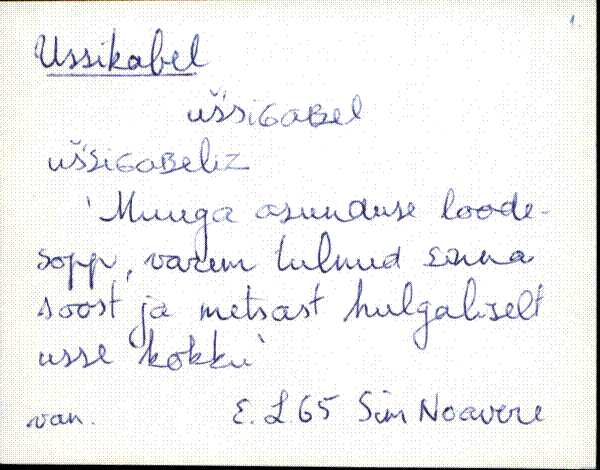 1.
Ussikabel
uššiGaBel
ušsiGaBeliz
'Muuga asunduse loode-
sopp, varem tulnud sinna
soost ja metsast hulgaliselt
usse kokku'
van. E. L. 65 Sim Noavere